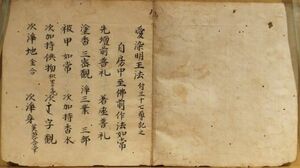 愛染明王法 付三十七尊記之
自房中至佛前作法如常
先壇前普礼 着座普礼
塗香三密觀 淨三業 三部
被甲如常 次加持香水
次加持供物 次 字觀
次淨地 次淨身